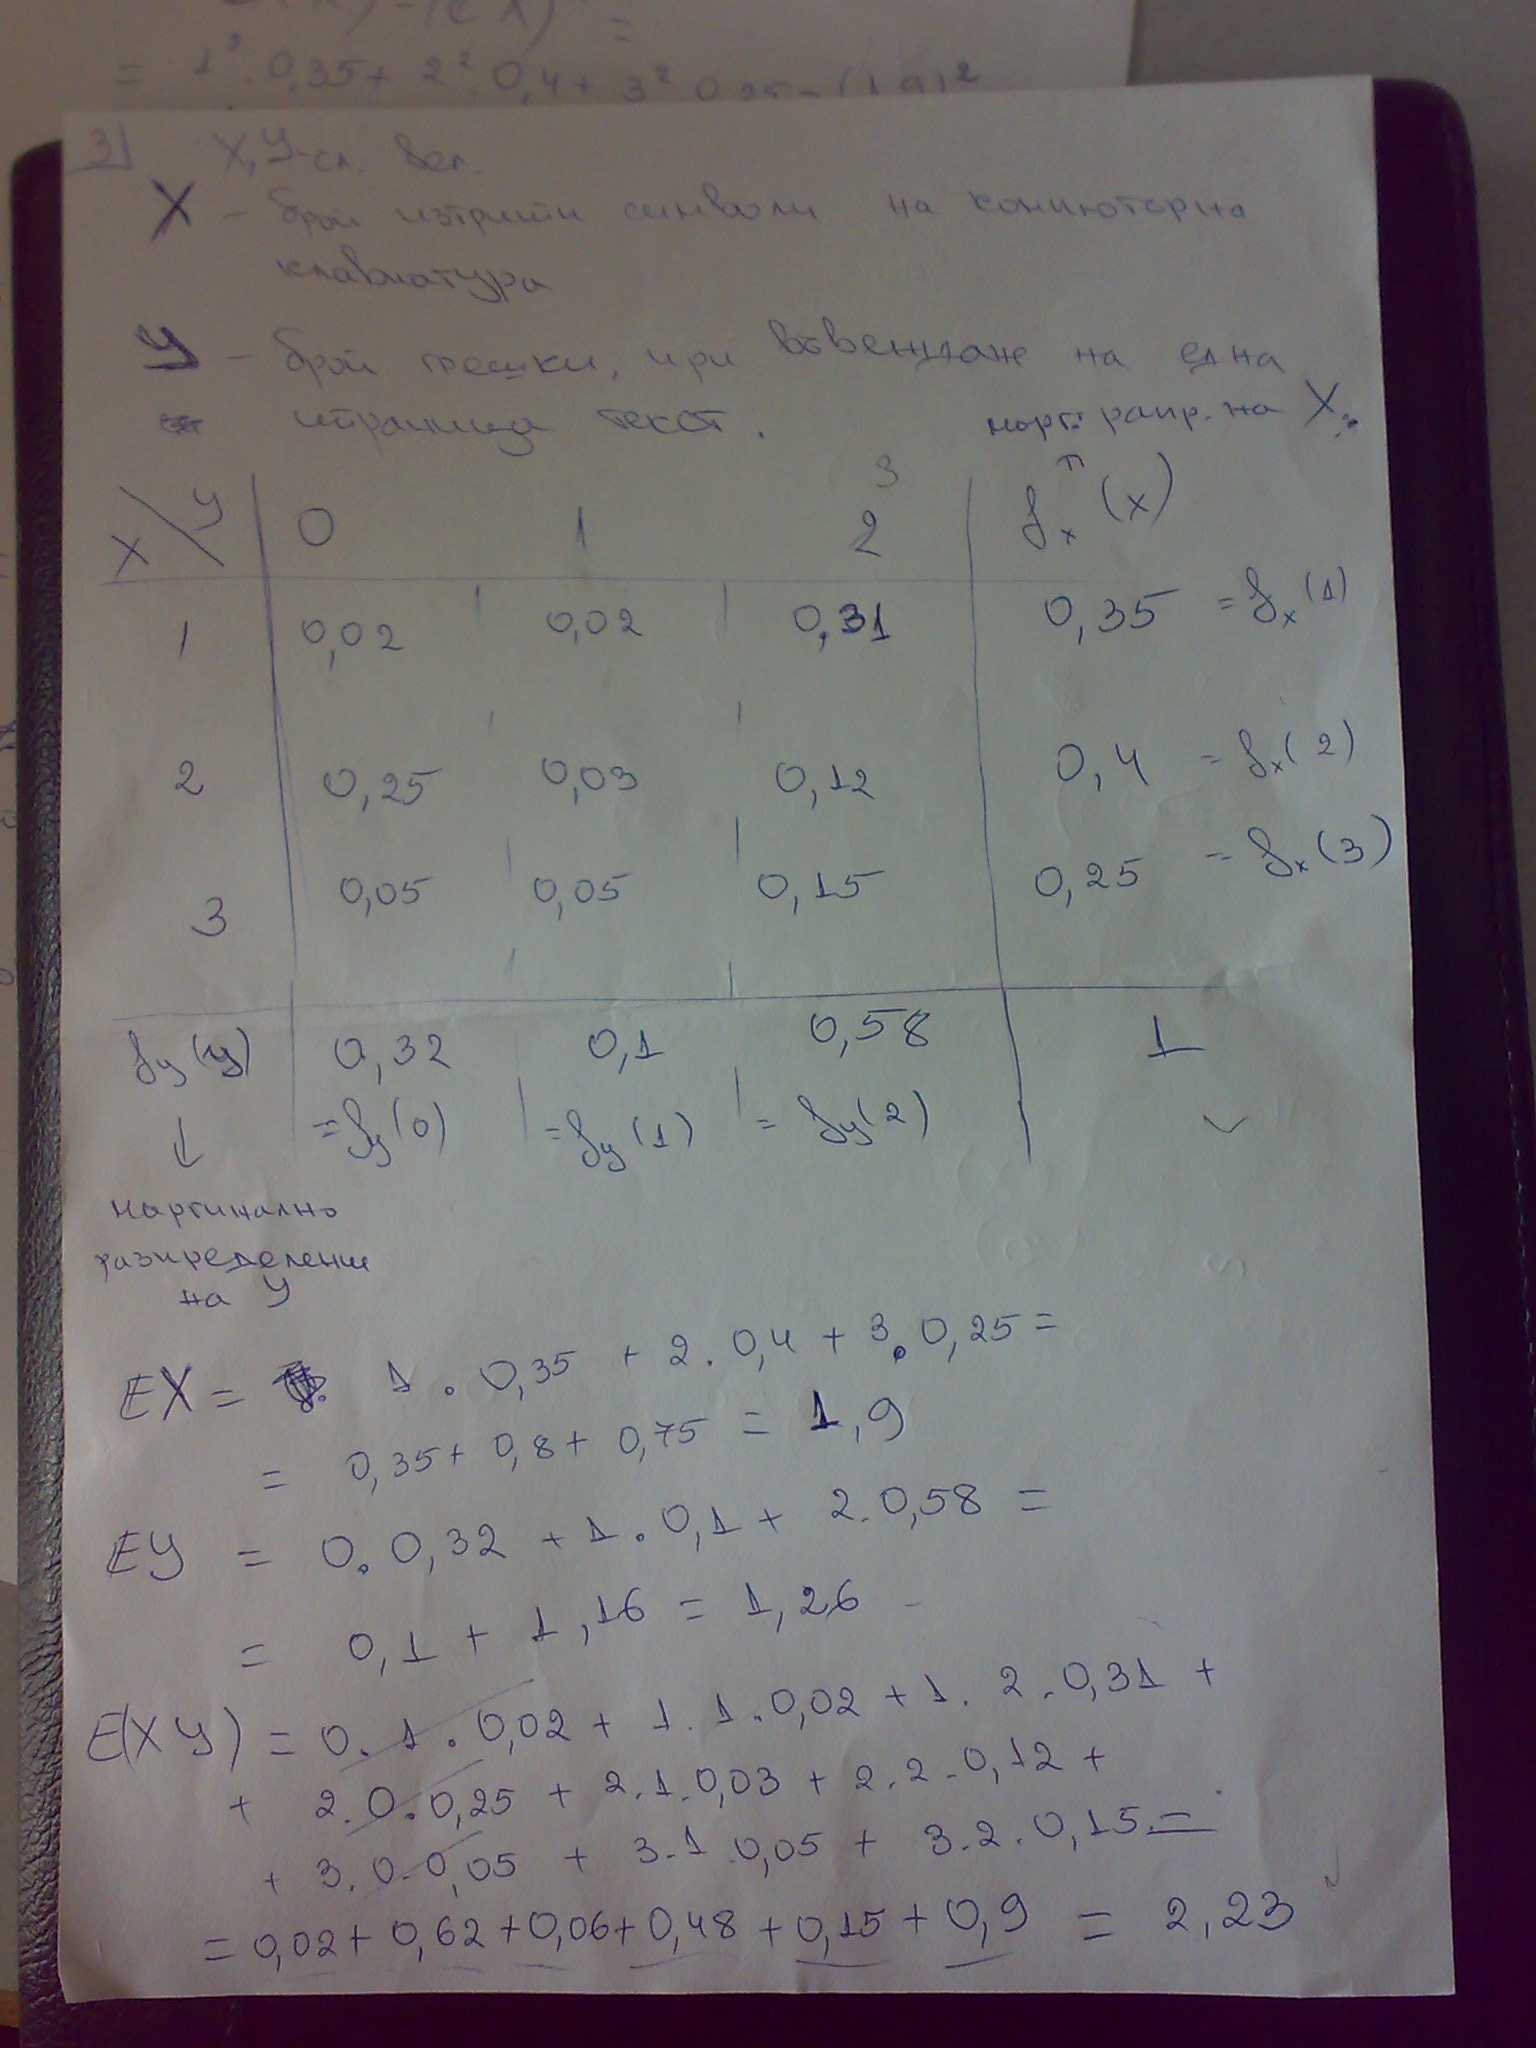 = 1² . 0,35 + 2² . 0,4 + 3² 0,25 - (1,9)²
3| X, У - сл. вел.
X - брой изтрити символи на компютърна
клавиатура
У - брой грешки, при въвеждане на една
страница текст.
марг. разпр. на X.
3
X \ У 0 1 2 fx (x)
1 0,02 0,02 0,31 0,35 = fx (1)
2 0,25 0,03 0,12 0,4 = fx (2)
3 0,05 0,05 0,15 0,25 = fx (3)
fу (у) 0,32 0,1 0,58 1
↓ = fу (0) = fу (1) = fу (2)
маргинално
разпределение
на У
EX = 1 . 0,35 + 2 . 0,4 + 3 . 0,25 =
= 0,35 + 0,8 + 0,75 = 1,9
EУ = 0 . 0,32 + 1 . 0,1 + 2 . 0,58 =
= 0,1 + 1,16 = 1,26
E(XУ) = 0 . 1 . 0,02 + 1 . 1 . 0,02 + 1 . 2 . 0,31 +
+ 2 . 0 . 0,25 + 2 . 1 . 0,03 + 2 . 2 . 0,12 +
+ 3 . 0 . 0,05 + 3 . 1 . 0,05 + 3 . 2 . 0,15 =
= 0,02 + 0,62 + 0,06 + 0,48 + 0,15 + 0,9 = 2,23